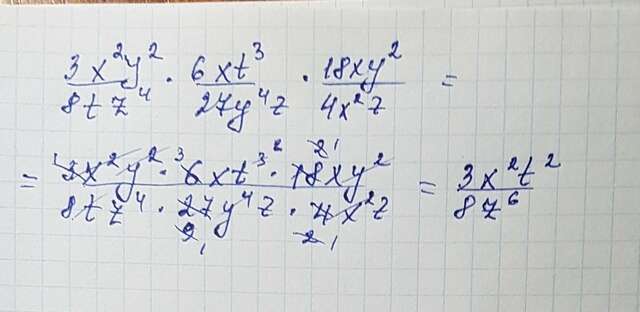 3x²y²/8tz⁴ · 6xt³/27y⁴z · 18xy²/4x²z =
= 3x²y² · 6xt³ · 18xy²/8tz⁴ · 27y⁴z · 4x²z = 3x²t²/8z⁶